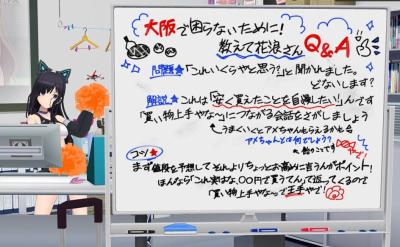 大阪で困らないために!
教えて花浪さん Q&A
問題★「これいくらやと思う?」と聞かれました。
どないします?
解説★これは「安く買えたことを自慢したい!」んです
「買い物上手やな〜」につながる会話をさがしましょう
うまくいくとアメちゃんもらえるかも
アメちゃんとは何でしょう??
飴のことです
コツ★
まず値段を予想して それよりちょっとお高めに言うんがポイント!
ほんなら「これ実は〇〇円で買うてん」って返ってくるので
「買い物上手やな〜」で王手やで!